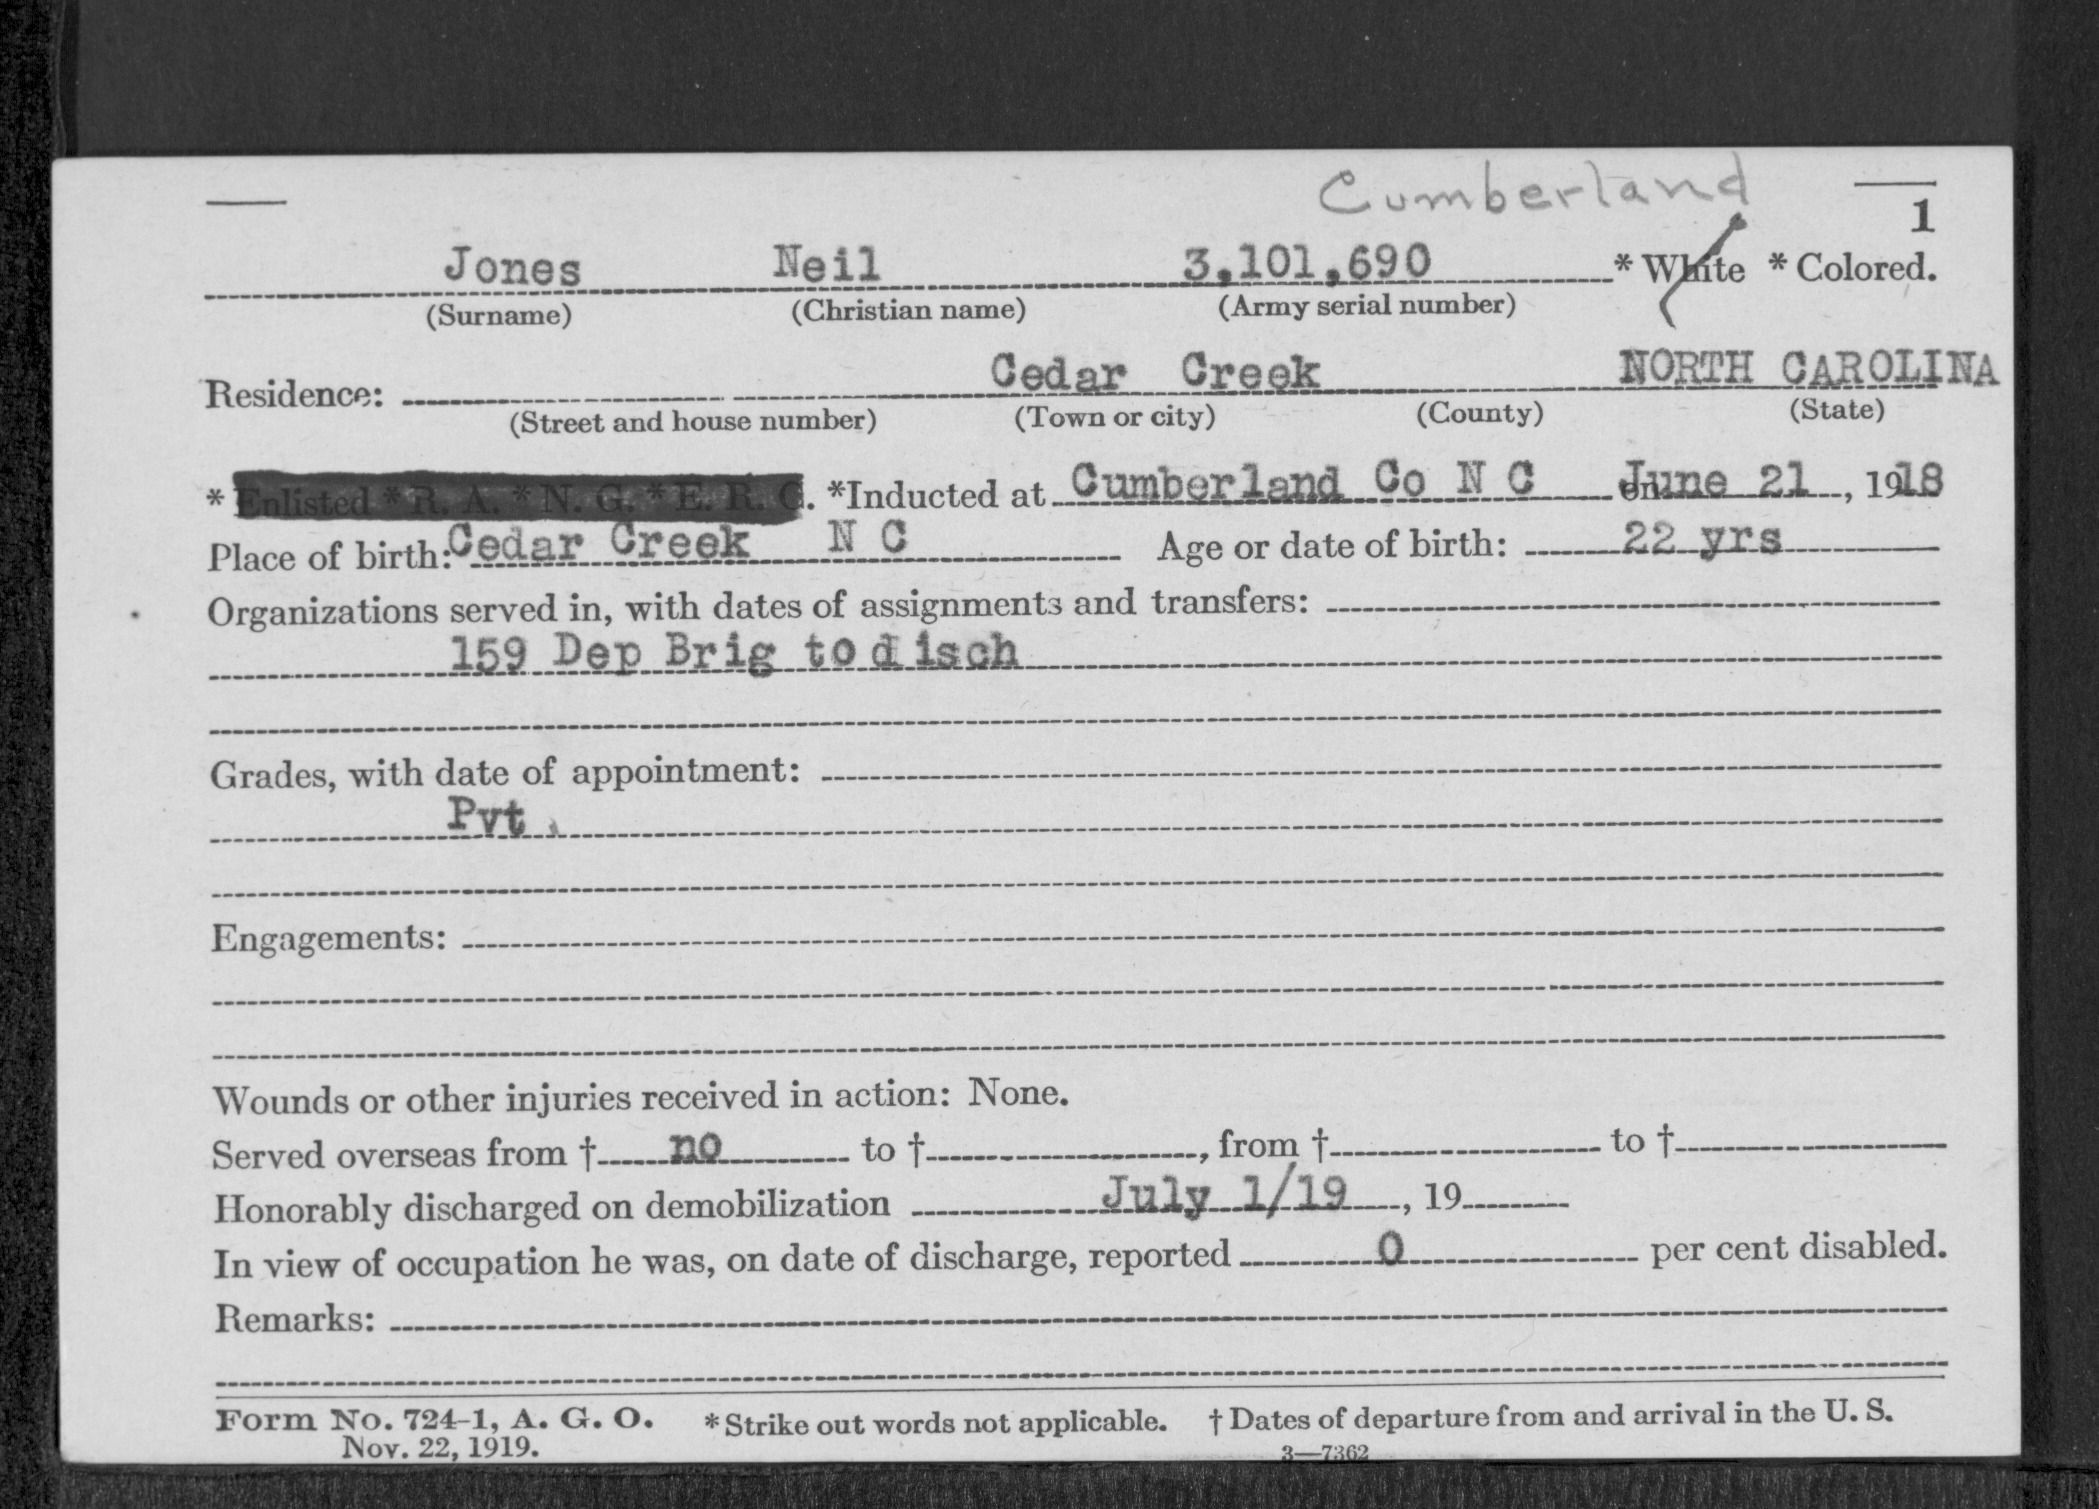 Cumberland
1
Jones Neil 3,101,690 * White * Colored.
(Surname) (Christian name) (Army serial number)
Residence: Cedar Creek NORTH CAROLINA
(Street and house number) (Town or city) (County) (State)
* Enlisted * R. A. * N. G. * E. R. C. *Inducted at Cumberland Co N C on June 21, 1918
Place of birth: Cedar Creek N C Age or date of birth: 22 yrs
Organizations served in, with dates of assignments and transfers:
159 Dep Brig to disch
Grades, with date of appointment:
Pvt
Engagements:
Wounds or other injuries received in action: None.
Served overseas from † no to †, from † to †
Honorably discharged on demobilization July 1/19, 19
In view of occupation he was, on date of discharge, reported 0 per cent disabled.
Remarks:
Form No. 724-1, A. G. O. * Strike out words not applicable. † Dates of departure from and arrival in the U. S.
Nov. 22, 1919. 3—7362